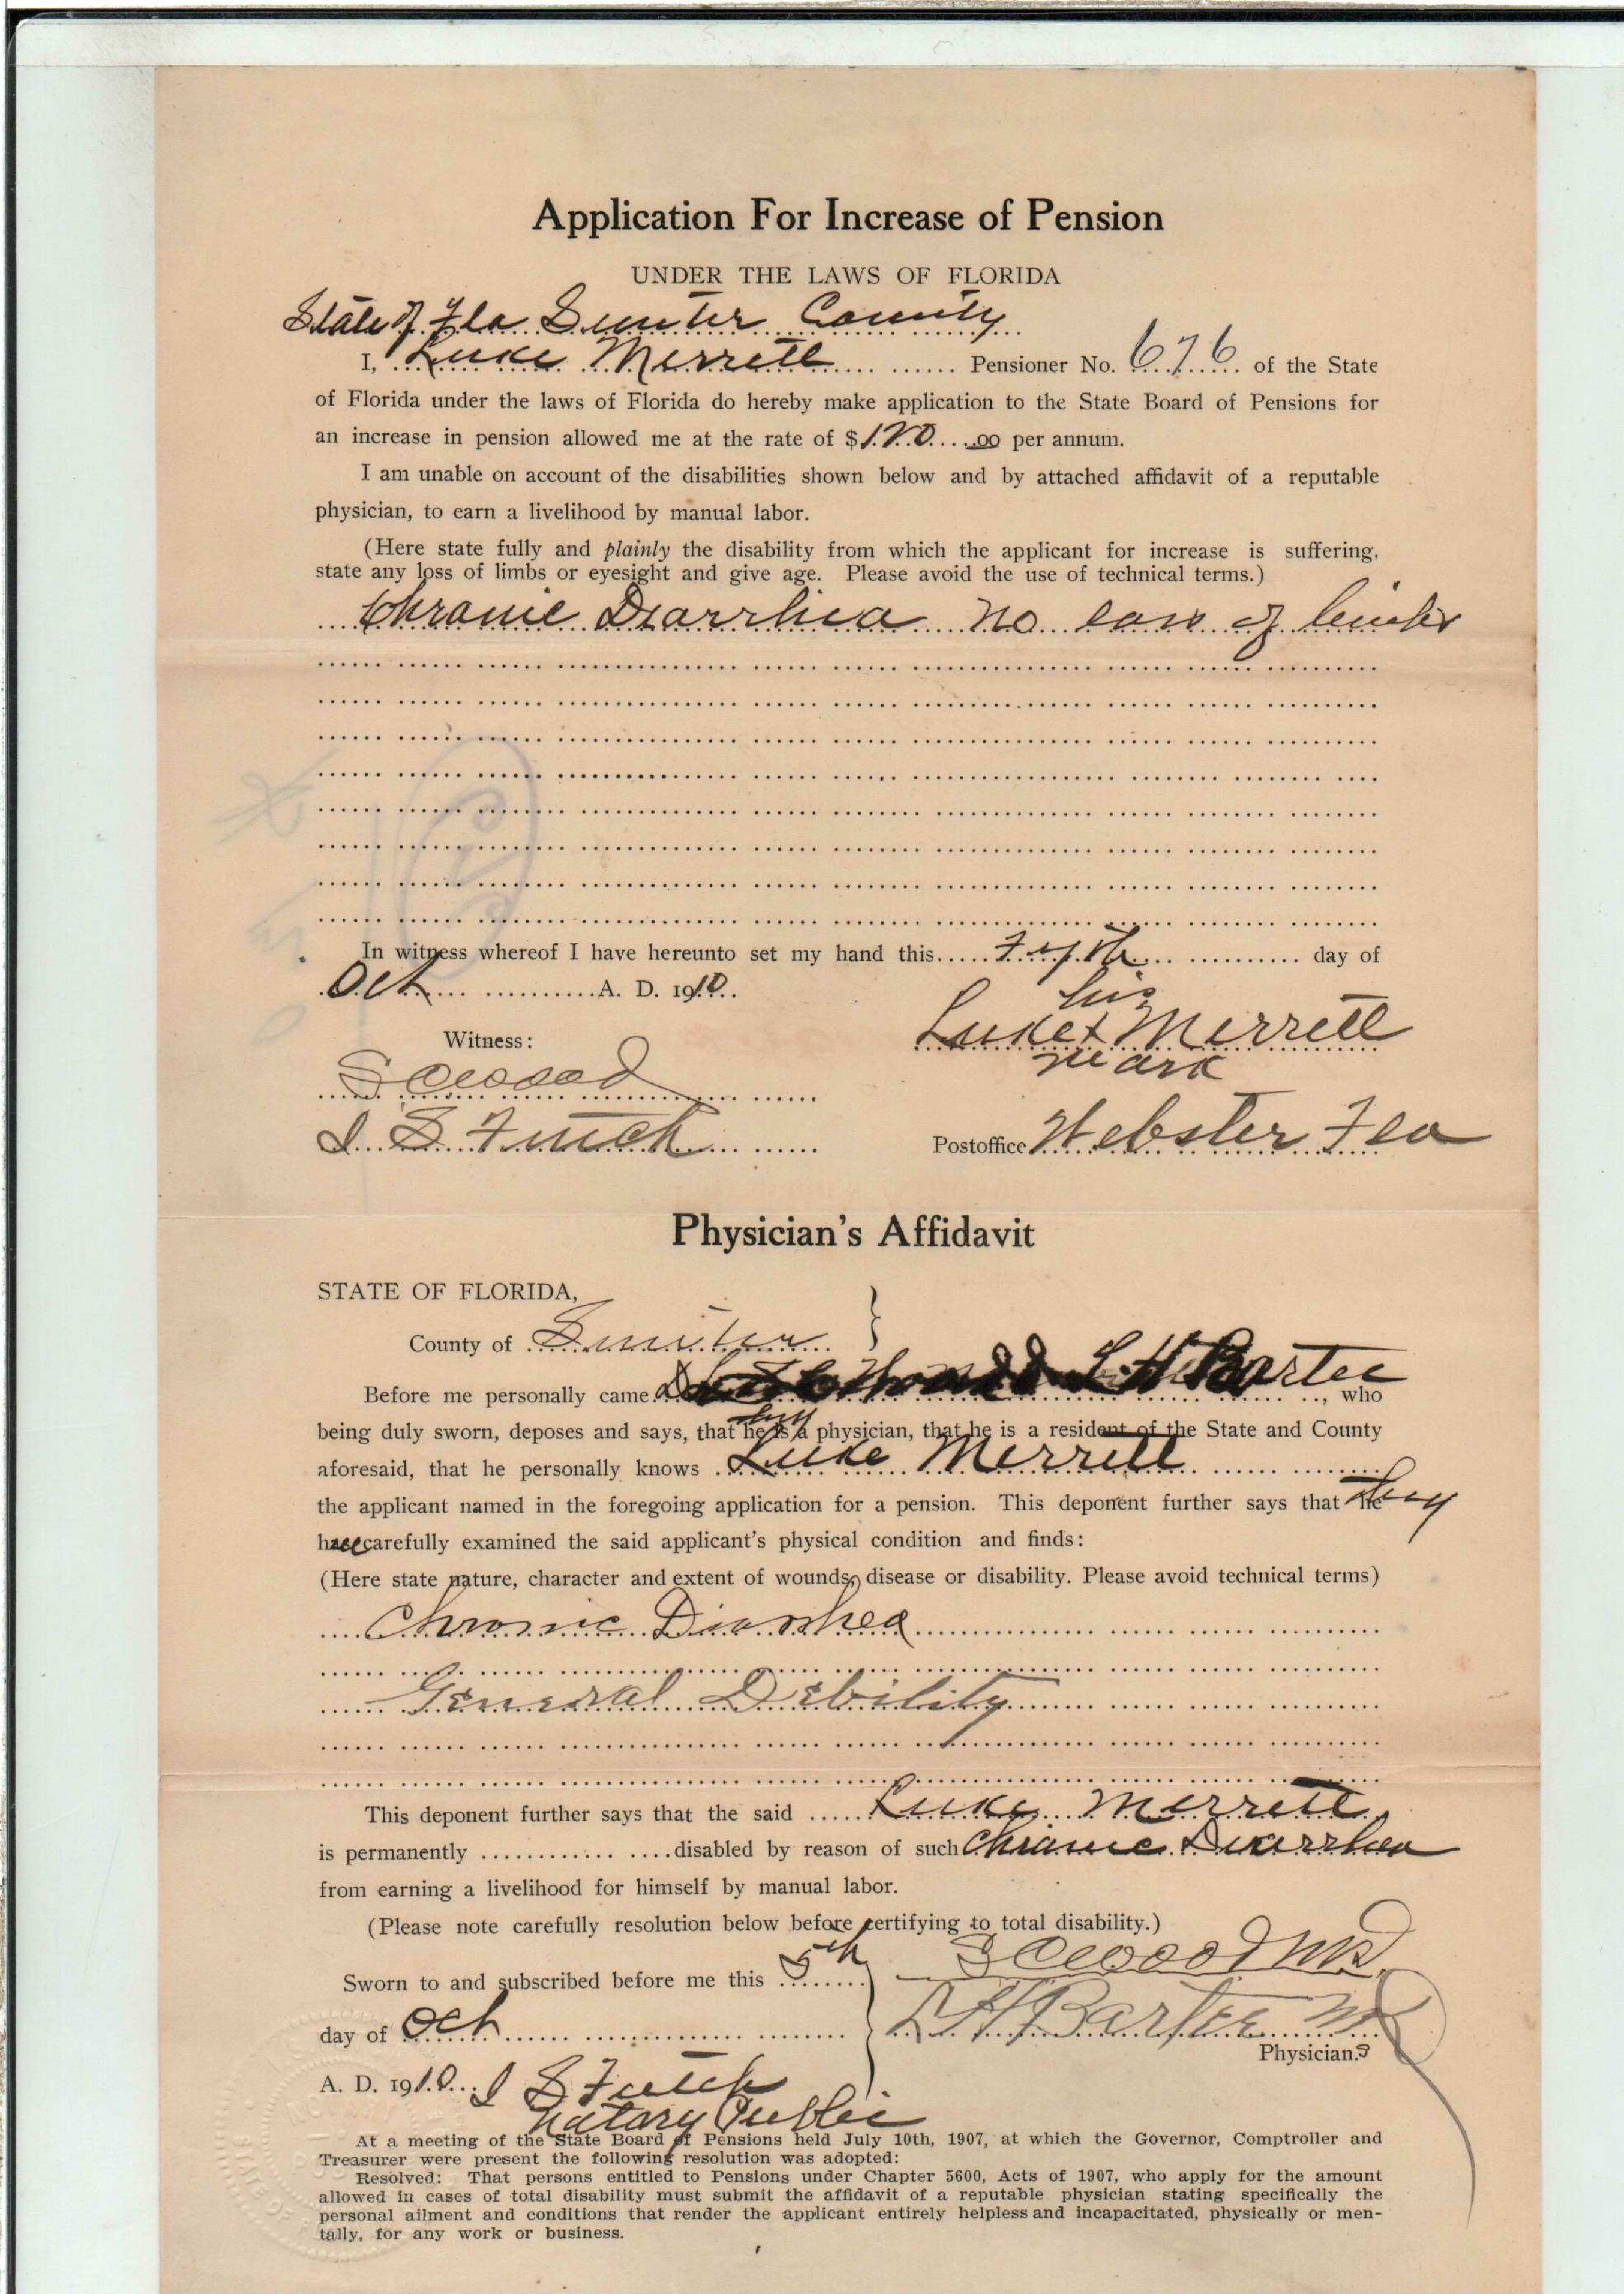 Application For Increase of Pension
UNDER THE LAWS OF FLORIDA
State of Fla Sumter County
I, Luke Merrett Pensioner No. 676 of the State
of Florida under the laws of Florida do hereby make application to the State Board of Pensions for
an increase in pension allowed me at the rate of $120.00 per annum.
I am unable on account of the disabilities shown below and by attached affidavit of a reputable
physician, to earn a livelihood by manual labor.
(Here state fully and plainly the disability from which the applicant for increase is suffering,
state any loss of limbs or eyesight and give age. Please avoid the use of technical terms.)
Chronic Diarrhea no loss of limbs
In witness whereof I have hereunto set my hand this day of
Oct A. D. 1910.
his
Witness: Luke x Merrett
mark
S C Wood
I. S. Futch Postoffice Webster Fla
Physician's Affidavit
STATE OF FLORIDA,
County of Sumter }
Before me personally came L H Bartee, who
being duly sworn, deposes and says, that he is a physician, that he is a resident of the State and County
aforesaid, that he personally knows Luke Merrett
the applicant named in the foregoing application for a pension. This deponent further says that they
have carefully examined the said applicant's physical condition and finds:
(Here state nature, character and extent of wounds, disease or disability. Please avoid technical terms)
Chronic Diarrhea
General Debility
This deponent further says that the said Luke Merrett
is permanently disabled by reason of such Chronic Diarrhea
from earning a livelihood for himself by manual labor.
(Please note carefully resolution below before certifying to total disability.)
S C Wood MD.
Sworn to and subscribed before me this 5th
day of Oct L H Bartee MD
Physician.s
A. D. 1910. I S Futch
Notary Public
At a meeting of the State Board of Pensions held July 10th, 1907, at which the Governor, Comptroller and
Treasurer were present the following resolution was adopted:
Resolved: That persons entitled to Pensions under Chapter 5600, Acts of 1907, who apply for the amount
allowed in cases of total disability must submit the affidavit of a reputable physician stating specifically the
personal ailment and conditions that render the applicant entirely helpless and incapacitated, physically or men-
tally, for any work or business.